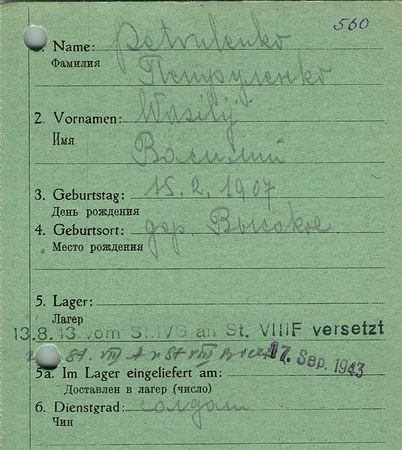 560
1. Name: Petrulenko
Фамилия Петруленко
2. Vornamen: Wasilij
Имя Василий
3. Geburtstag: 15. 2. 1907
День рождения
4. Geburtsort: дер. Высокое
Место рождения
5. Lager:
Лагер
13.8.43 vom St. IVG an St. VIIIF versetzt
St. VIII St VIII 17. Sep. 1943
5a. Im Lager eingeliefert am:
Доставлен в лагер (число)
6. Dienstgrad: солдат
Чин